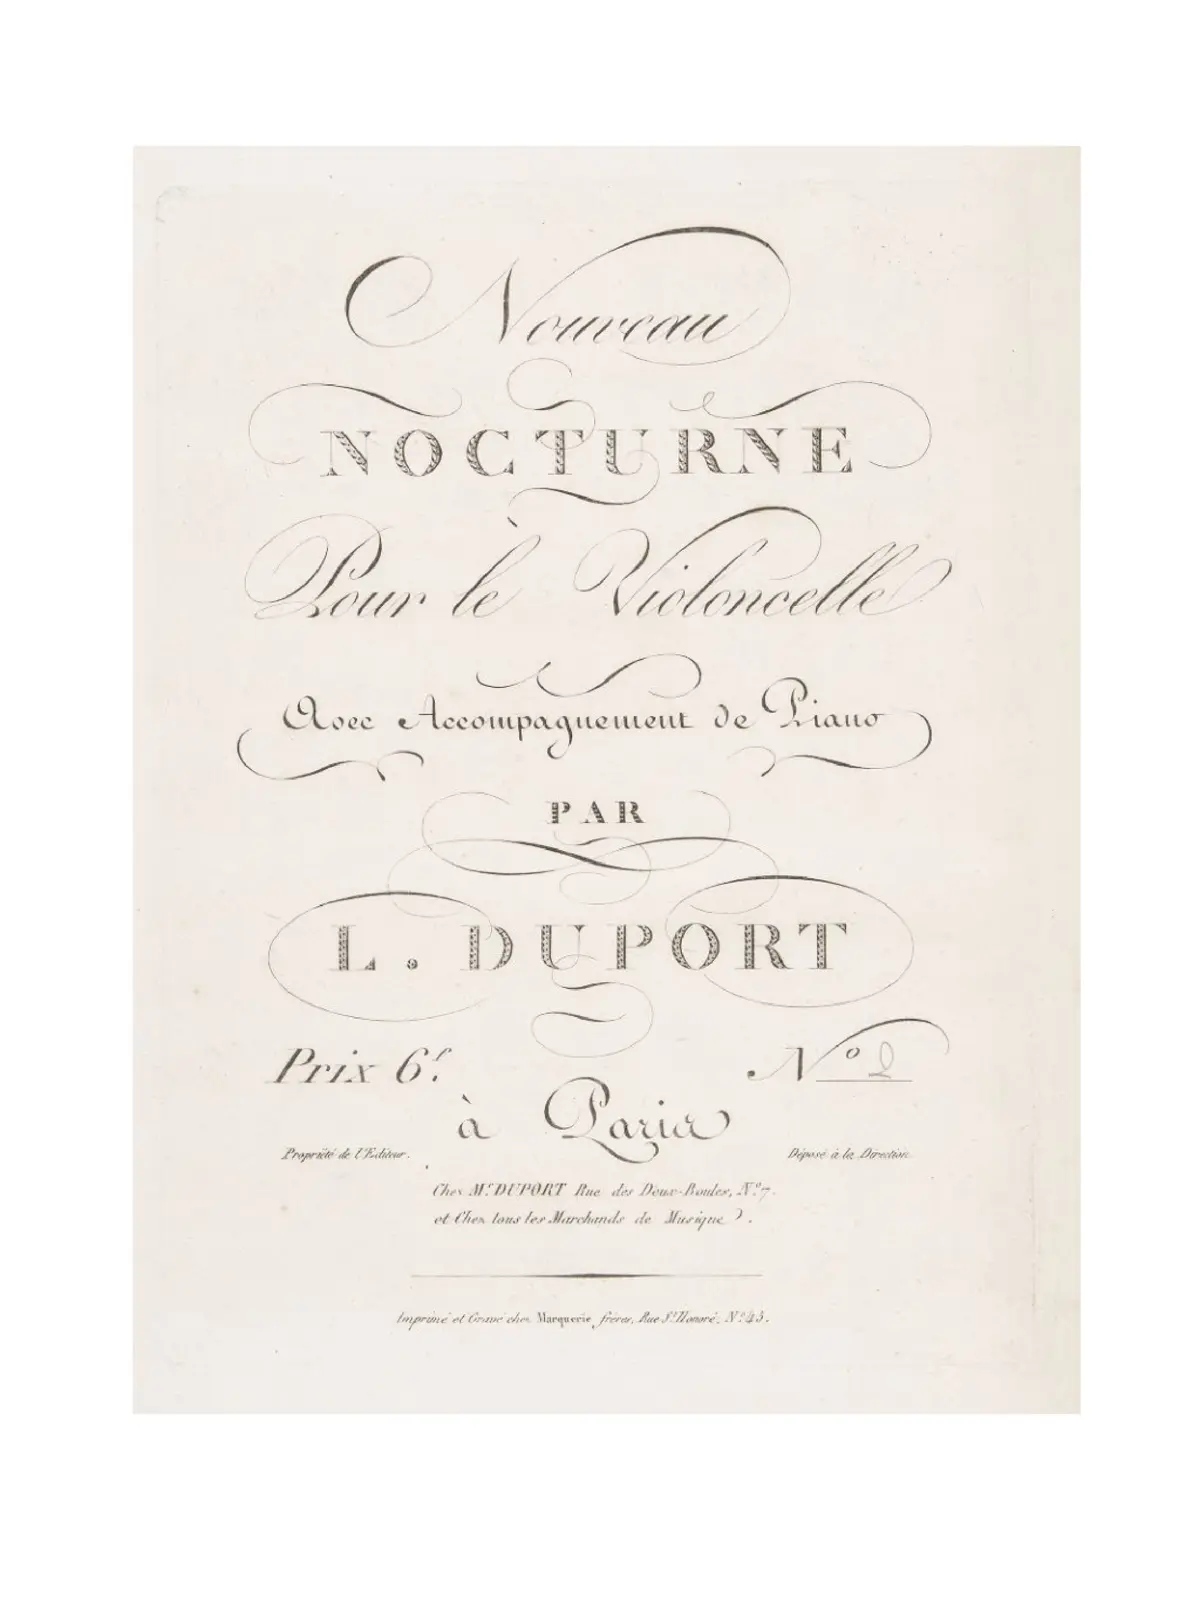 Nouveau
NOCTURNE
Pour lè Violoncelle
Avec Accompagnement de Piano
PAR
L. DUPORT
Prix 6f. Nº 2
à Paris
Propriété de l'Editeur. Déposé à la Direction.
Chez Mr. DUPORT Rue des Deux-Boules, Nº 7.
et Chez tous les Marchands de Musique.
Imprimé et Gravé chez Marquerie frères, Rue St. Honoré, Nº 43.